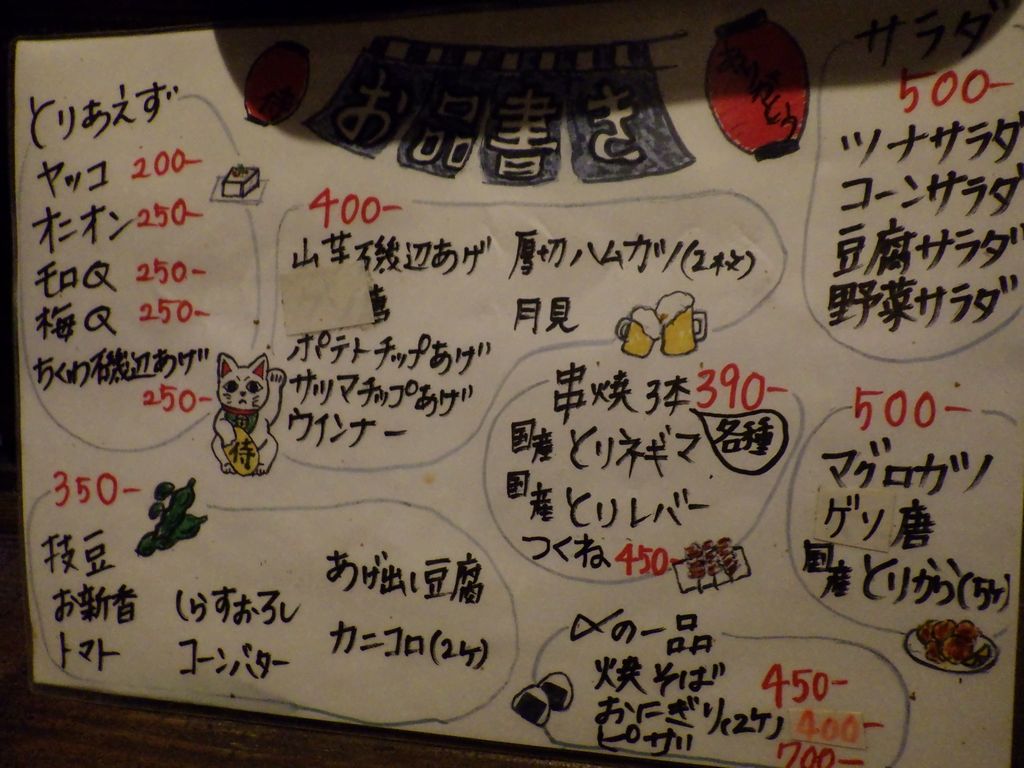 お品書き
ありがとう
とりあえず
ヤッコ 200-
オニオン 250-
モロQ 250-
梅Q 250-
ちくわ磯辺あげ
250-
侍
400-
山芋磯辺あげ
ポテトチップあげ
サツマチップあげ
ウインナー
厚切ハムカツ(2枚)
月見
サラダ
500-
ツナサラダ
コーンサラダ
豆腐サラダ
野菜サラダ
串焼3本390-
各種
国産とりネギマ
国産とりレバー
つくね450-
500-
マグロカツ
ゲソ唐
国産とりから(5ケ)
350-
枝豆
お新香
トマト
しらすおろし
コーンバター
あげ出し豆腐
カニコロ(2ケ)
〆の一品
焼そば 450-
おにぎり(2ケ) 400-
ピザ 700-